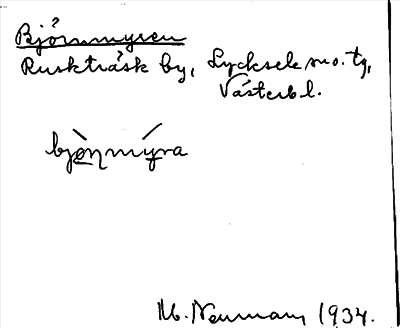 Björnmyren
Ruskträsk by, Lycksele sno. tg,
Västerb l.
bjö̀n̥mýra
M. Neuman, 1934.